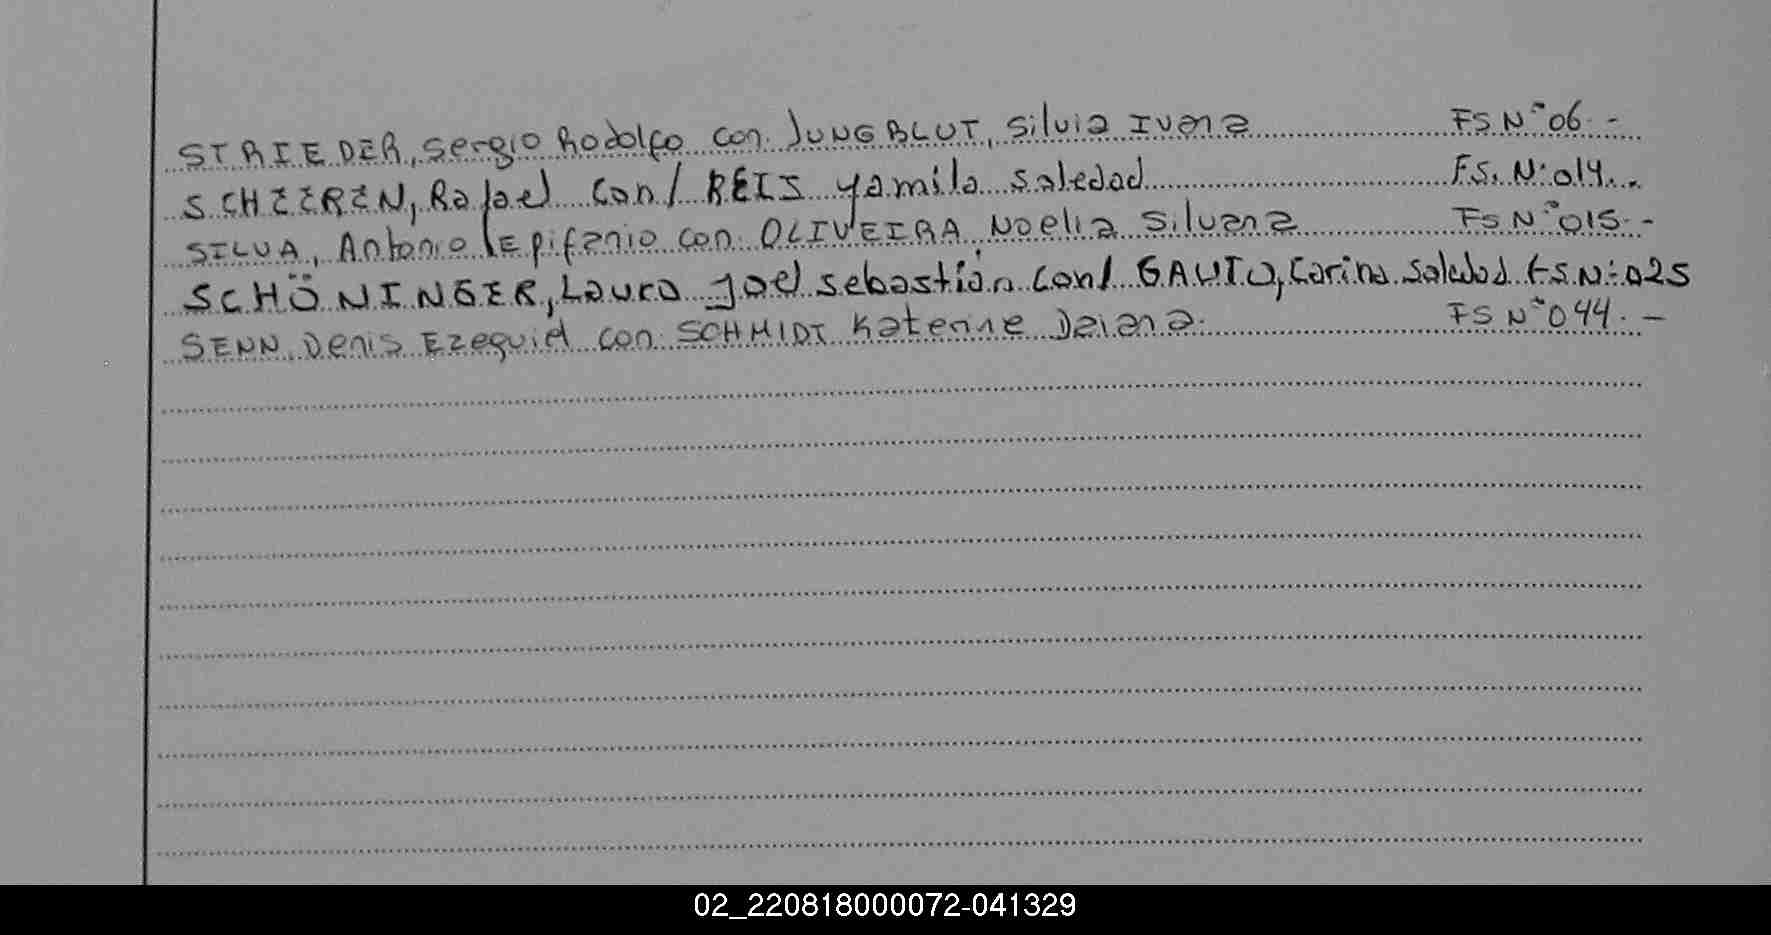 STRIEDER, Sergio Rodolfo con JUNGBLUT, Silvia Ivana FS Nº 06.-
SCHEEREN, Rafael con/ REIS yamila soledad FS. Nº 014..
SILVA, Antonio Epifanio con OLIVEIRA Noelia Silvana FS Nº 015.-
SCHÖNINGER, Lauro Joel sebastián con/ GAUTO, Carina Soledad FS.Nº 025
SENN, Denis Ezequiel con SCHMIDT Katerine Daiana. FS Nº 044.-
02_220818000072-041329